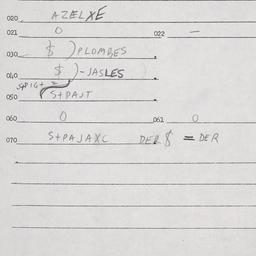 020 AZELXE
021 0 022 —
030 $ ) PLOMBES
040 $ ) - JASLES
S+PIG+
050 S+PAJT
060 0 061 0
070 S+PAJAXC DER $ = DER